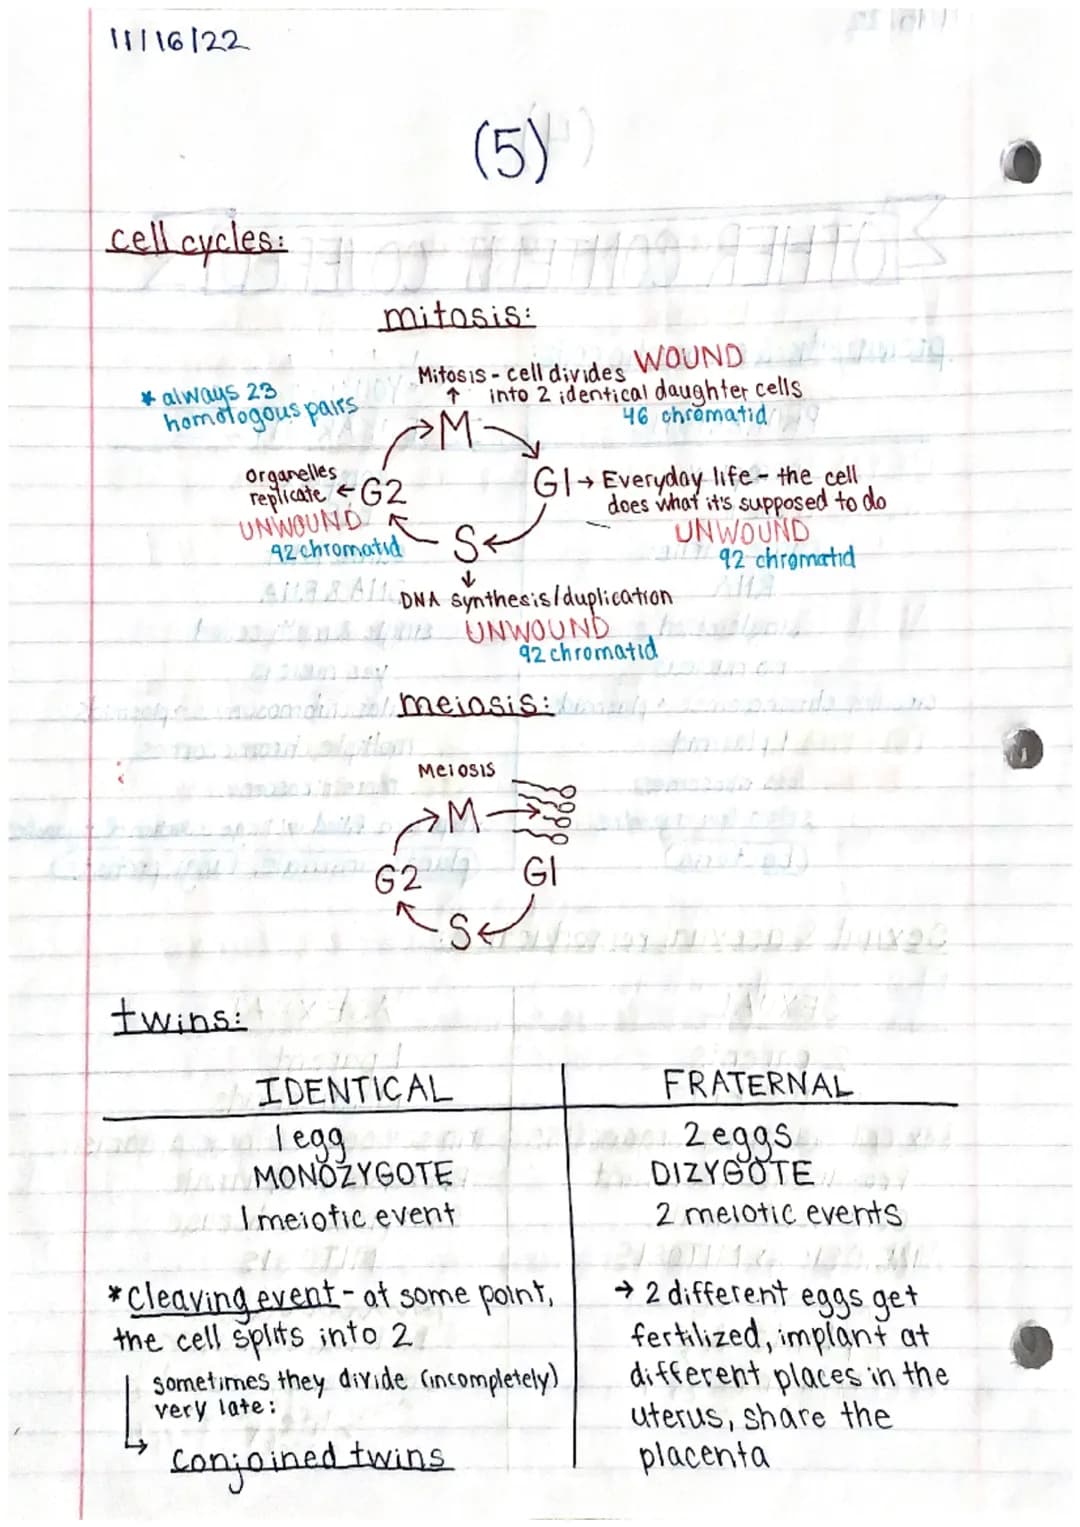 11/16/22
(5)
cell cycles:
mitosis:
* always 23
homologous pairs
Mitosis - cell divides WOUND
into 2 identical daughter cells
46 chromatid
M
Organelles
replicate ← G2
UNWOUND
92 chromatid
G1 → Everyday life - the cell
does what it's supposed to do
UNWOUND
92 chromatid
S
DNA synthesis/duplication
UNWOUND
92 chromatid
meiosis:
Meiosis
M
G2
G1
S
twins:
IDENTICAL
1 egg
MONOZYGOTE
1 meiotic event
* Cleaving event - at some point,
the cell splits into 2
sometimes they divide (incompletely)
very late:
conjoined twins
FRATERNAL
2 eggs
DIZYGOTE
2 meiotic events
→ 2 different eggs get
fertilized, implant at
different places in the
uterus, share the
placenta